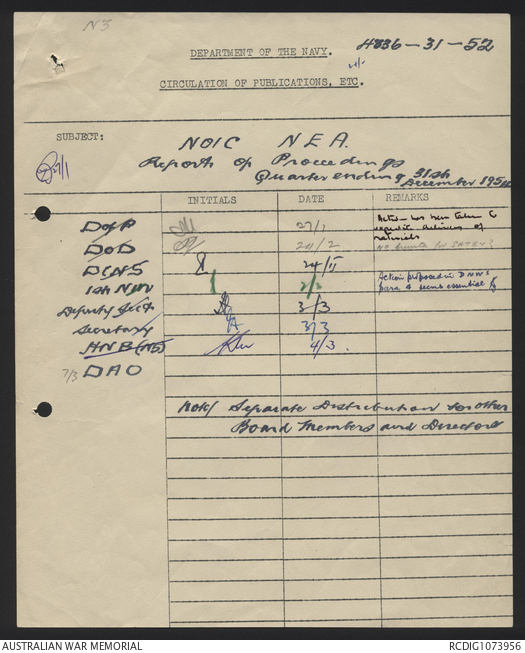 N3
DEPARTMENT OF THE NAVY.
H836-31-52
CIRCULATION OF PUBLICATIONS, ETC.
SUBJECT:
NOIC NEA.
Reports of Proceedings
Quarter ending 31st
December 195
INITIALS DATE REMARKS
D of P 27/1
Action has been taken to
expedite delivery of
materials
DoD 20/2
DCNS 24/II
1st NM 2/3
Action proposed in DNWS
para 4 seems essential
Deputy Sect 3/3
Secretary 3/3
HNB 4/3.
7/3 DAO
Note/ Separate Distribution to other
Board Members and Directors
AUSTRALIAN WAR MEMORIAL
RCDIG1073956